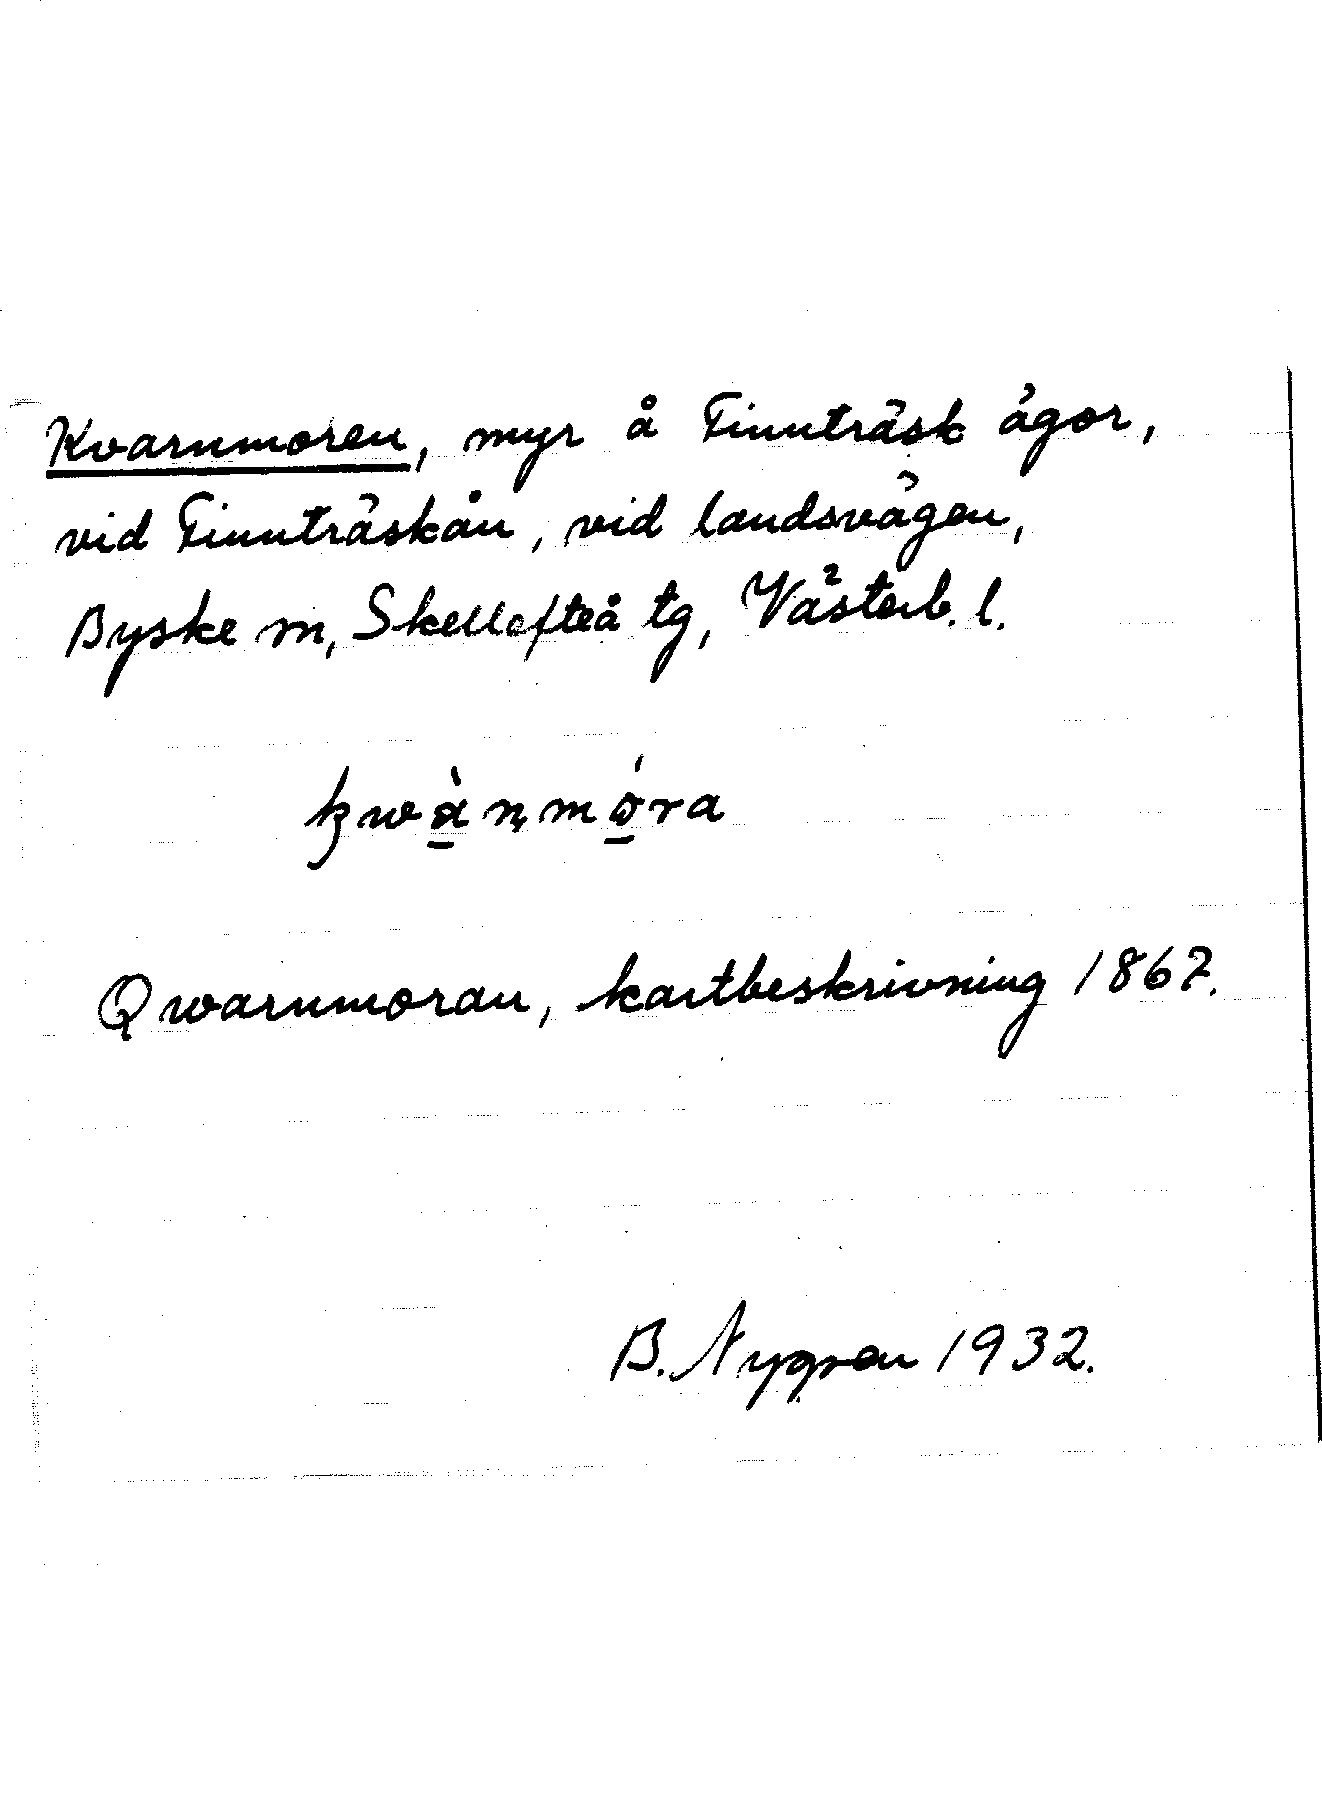 Kvarnmoren, myr å Finnträsk ägor,
vid Finnträskån, vid landsvägen,
Byske sn, Skellefteå tg, Västerb. l.
kwàṇmóra
Qwarnmoran, kartbeskrivning 1867.
B. Nygren 1932.